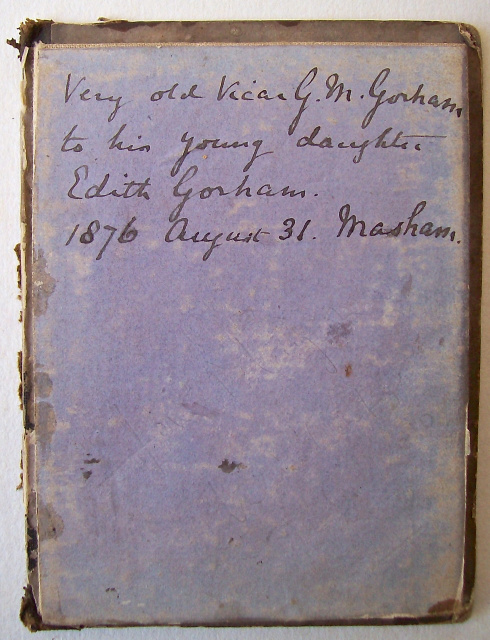 Very old Vicar G. M. Gorham
to his young daughter
Edith Gorham.
1876 August 31. Masham.